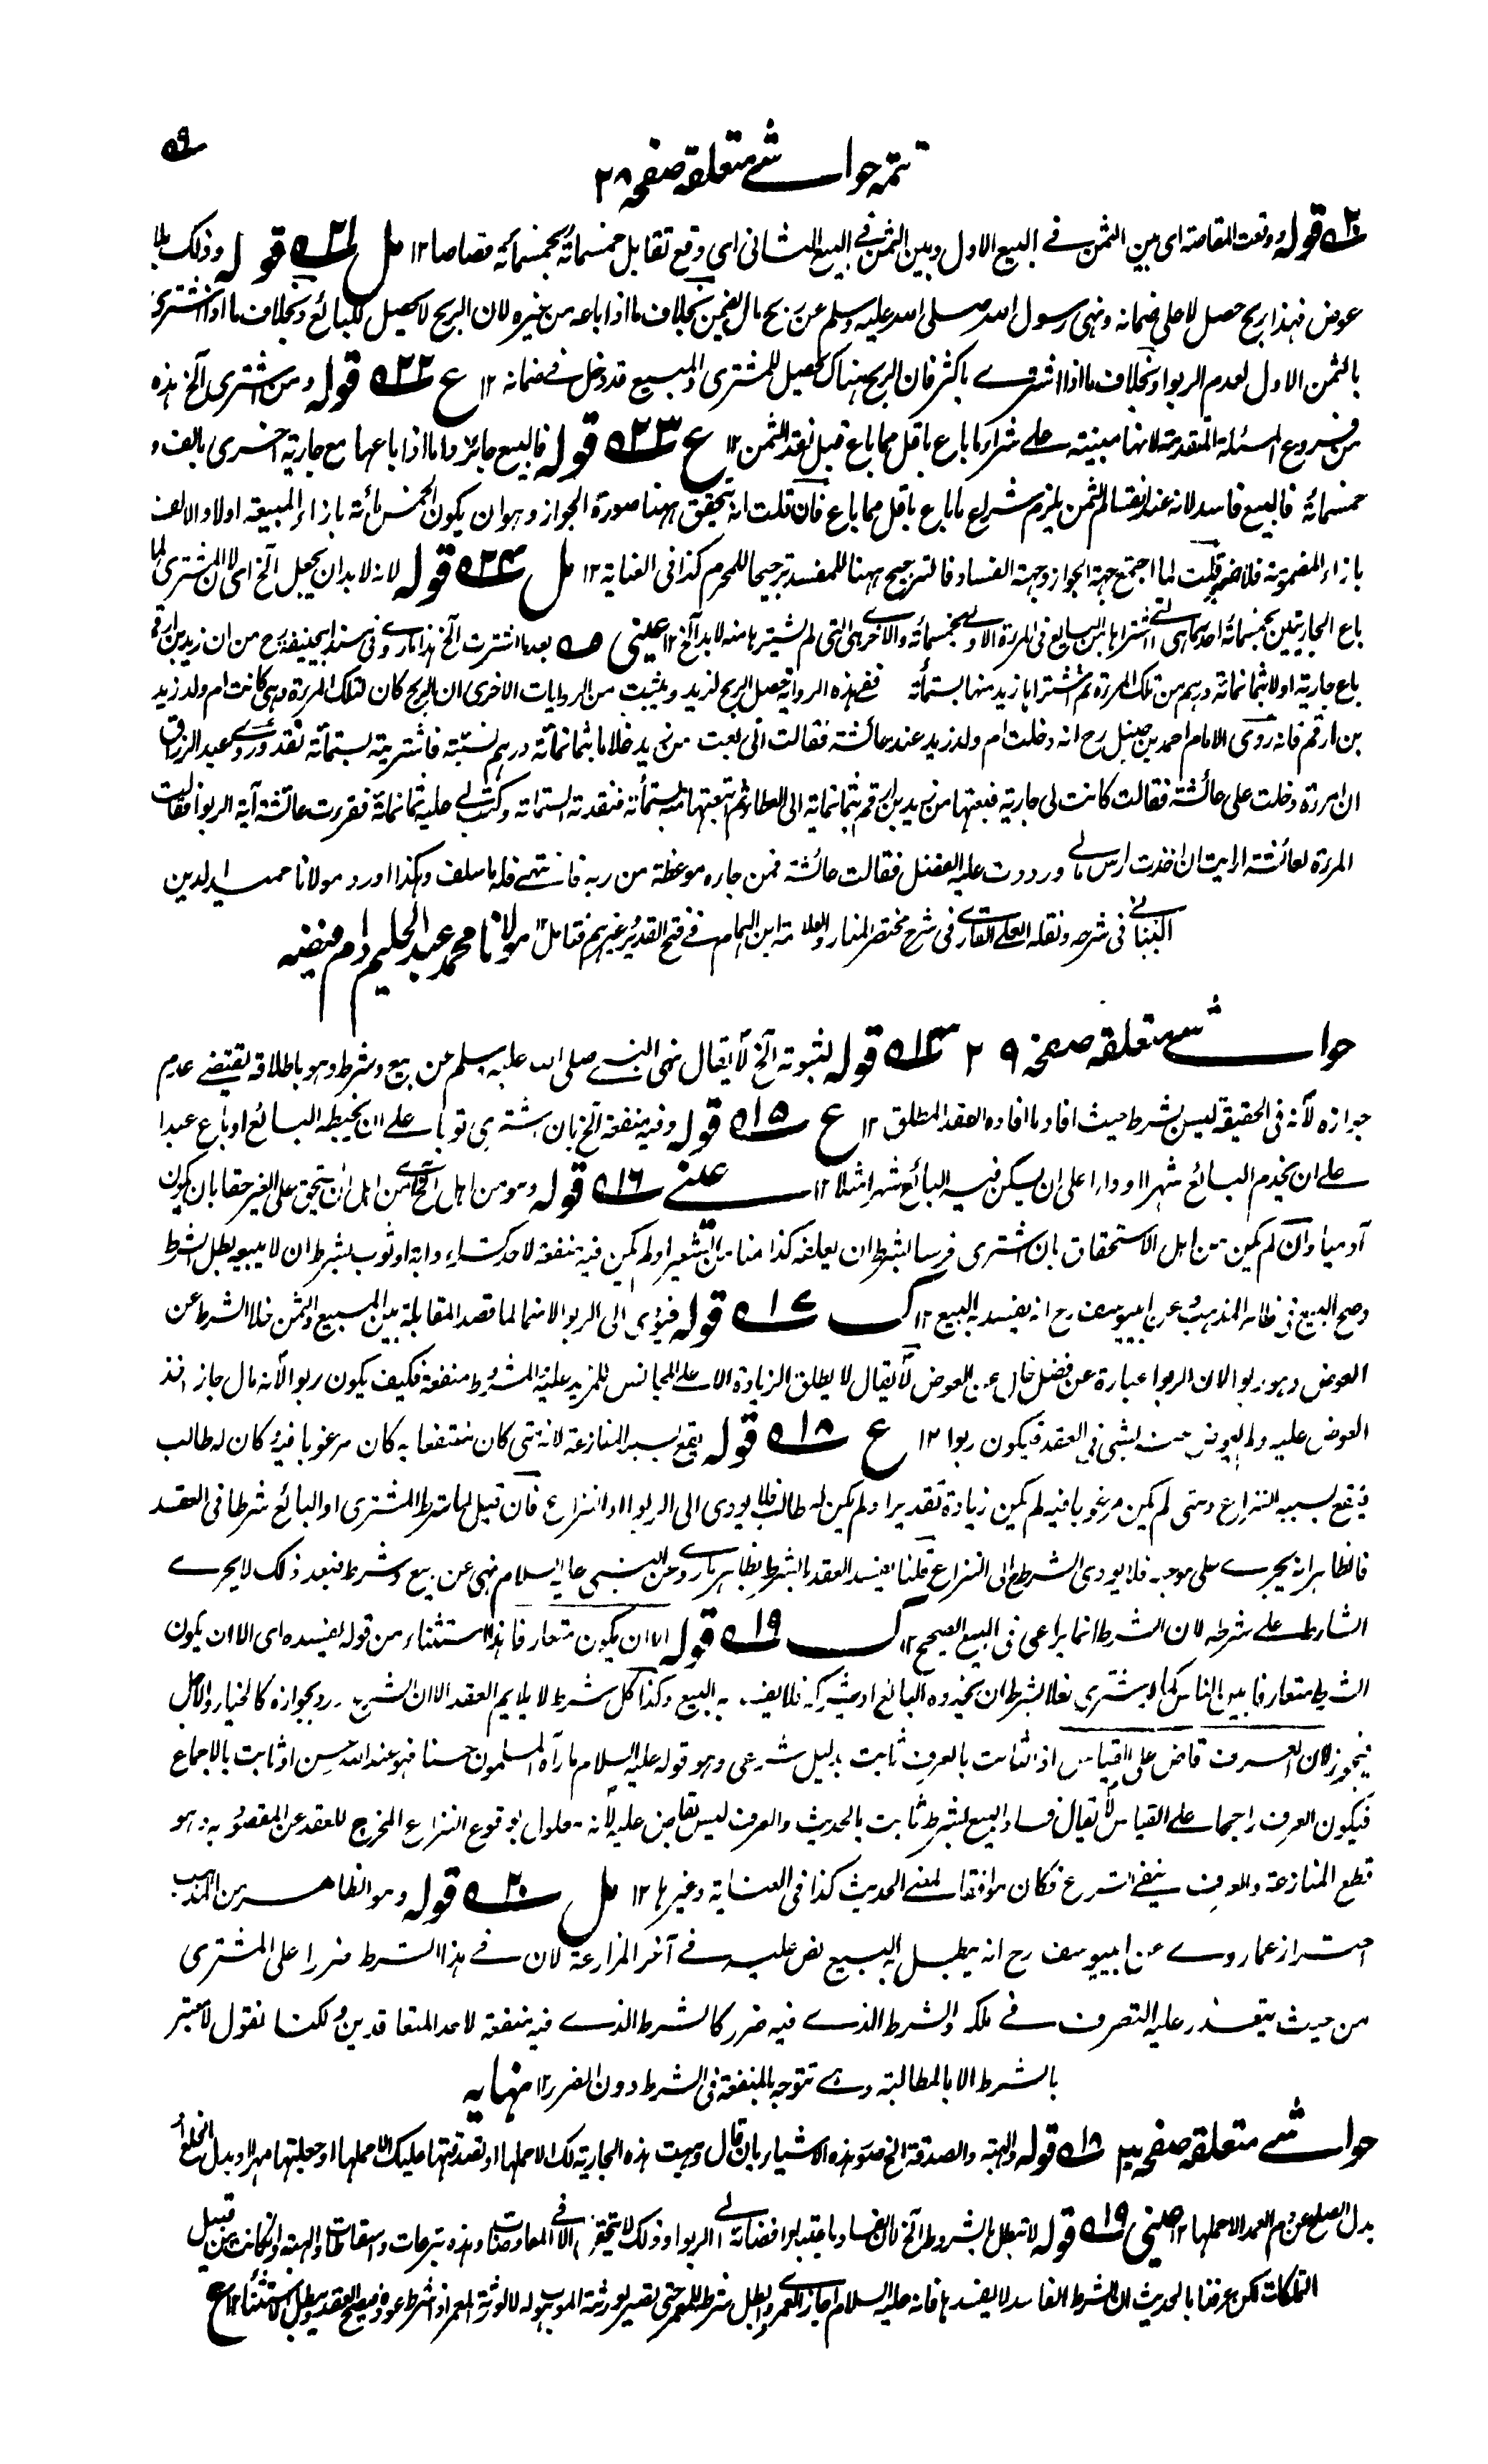 ٥٩
تتمہ حواشی متعلقہ صفحہ ٢٨
٢٠ قولہ ووقعت المقاصة ای بین الثمن فی البیع الاول وبین الثمن فی البیع الثانی ای وقع تقابل خمسمائة بخمسمائة قصاصا ١٢ مل ٢١ قولہ وذلک بلا
عوض فہذا ربح حصل لا علی ضمانہ ونہی رسول اللہ صلی اللہ علیہ وسلم عن ربح مالم یضمن بخلاف ما اذا باعہ من غیرہ لان الربح لا یحصل للبائع وبخلاف ما اذا اشتری
بالثمن الاول لعدم الربوا وبخلاف ما اذا اشتری باکثر فان الربح ہناک یحصل للمشتری والمبیع قد دخل فی ضمانہ ١٢ ع ٢٢ قولہ ومن اشتری الخ ہذہ
من فروع المسئلة المتقدمة لانہا مبنیة علی شراء ما باع باقل مما باع قبل نقد الثمن ١٢ ع ٢٣ قولہ فالبیع جائز واما اذا باعہا مع جاریة اخری بالف و
خمسمائة فالبیع فاسد لانہ عند انقسام الثمن یلزم شراء ما باع باقل مما باع فان قلت انہ یتحقق ہہنا صورة الجواز وہو ان یکون الخمس مائة بازاء المبیعة اولا والالف
بازاء المضمومة فلا ضیر قلت لما اجتمع جہة الجواز وجہة الفساد فالترجیح ہہنا للمفسد ترجیحا للمحرم کذا فی العنایة ١٢ مل ٢٤ قولہ لانہ لابد ان یجعل الخ ای لان المشتری لما
باع الجاریتین بخمسمائة احدہما ہی التی اشتراہا من البایع فی المرة الاولی بخمسمائة والاخری ہی التی لم یشترہا منہ لابد الخ ١٢ عینی ٥ بعد ما اشترت الخ ہذا ما روی فی مسند ابیحنیفة رح من ان زید بن ارقم
باع جاریة اولا بثمانمائة درہم من تلک المرءة ثم اشتراہا زید منہا بستمائة ففی ہذہ الروایة حصل الربح لزید ویثبت من الروایات الاخری ان الربح کان لتلک المرءة وہی کانت ام ولد زید
بن ارقم فانہ روی الامام احمد بن حنبل رح انہ دخلت ام ولد زید عند عائشة فقالت انی بعت من زید غلاما بثمانمائة درہم نسیئة فاشتریتہ بستمائة نقدا وروی عبد الرزاق
ان امرءة دخلت علی عائشة فقالت کانت لی جاریة فبعتہا من زید بن ارقم بثمانمایة الی العطاء ثم ابتعتہا منہ بستمائة فنقدتہ الستمائة وکتبت لی علیہ ثمانمائة فقرءت عائشة آیة الربوا فقالت
المرءة لعائشة ارایت ان اخذت راس مالی ورددت علیہ الفضل فقالت عائشة فمن جاءہ موعظة من ربہ فانتہی فلہ ما سلف وہکذا اورد مولانا حمید الدین
البنبانی فی شرحہ ونقلہ العلی القاری فی شرح مختصر المنار والعلامة ابن الہمام فی فتح القدیر وغیرہم فتامل ١٢ مولانا محمد عبد الحلیم دام فیضہ
حواشی متعلقہ صفحہ ٢٩ ١٤ قولہ لثبوتہ الخ لا یقال نہی النبی صلی اللہ علیہ وسلم عن بیع وشرط وہو باطلاقہ یقتضی عدم
جوازہ لانہ فی الحقیقة لیس بشرط حیث افاد ما افادہ العقد المطلق ١٢ ع ١٥ قولہ وفیہ منفعة الخ بان اشتری ثوبا علی ان یخیطہ البائع او باع عبدا
علی ان یخدم البائع شہرا او دارا علی ان یسکن فیہ البائع شہرا مثلا ١٢ عینی ١٦ قولہ وہو من اہل الخ ای من اہل ان یستحق علی الغیر حقا بان یکون
آدمیا وان لم یکن من اہل الاستحقاق بان اشتری فرسا بشرط ان یعلفہ کذا منا من الشعیر او لم یکن فیہ منفعة لاحد کشراء دابة او ثوب بشرط ان لا یبیعہ بطل الشرط
وصح البیع فی ظاہر المذہب وعن ابیوسف رح انہ یفسد بہ البیع ١٢ ک ١٧ قولہ فیؤدی الی الربوا لانہما لما قصد المقابلة بین المبیع والثمن خلا الشرط عن
العوض وہو ربوا لان الربوا عبارة عن فضل خال عن العوض لا یقال لا یطلق الزیادة الا علی المجانس للمزید علیہ والمشروط منفعة فکیف یکون ربوا لانہ مال جاز اخذ
العوض علیہ ولم یعوض عنہ بشئ فی العقد فیکون ربوا ١٢ ع ١٨ قولہ یقع بسببہ المنازعة لانہ متی کان منتفعا بہ کان مرغوبا فیہ وکان لہ طالب
فیقع بسببہ النزاع ومتی لم یکن مرغوبا فیہ لم یکن زیادة تقدیرا ولم یکن لہ طالب فلا یودی الی الربوا او النزاع فان قیل لما شرط المشتری او البائع شرطا فی العقد
فالظاہر انہ یجری علی موجبہ فلا یودی الشرط الی النزاع قلنا یفسد العقد بالشرط بظاہر ما روی عن النبی علیہ السلام نہی عن بیع وشرط فبعد ذلک لا یجری
الشارط علی شرطہ لان الشرط انما یراعی فی البیع الصحیح ١٢ ک ١٩ قولہ الا ان یکون متعارفا ہذا الاستثناء من قولہ یفسدہ ای الا ان یکون
الشرط متعارفا بین الناس کما لو اشتری نعلا بشرط ان یحذوہ البائع او یشرکہ فلا یفسد بہ البیع وکذا کل شرط لا یلایم العقد الا ان الشرع ورد بجوازہ کالخیار والاجل
فیجوز لان العرف قاض علی القیاس اذ الثابت بالعرف ثابت بدلیل شرعی وہو قولہ علیہ السلام ما رآہ المسلمون حسنا فہو عند اللہ حسن او ثابت بالاجماع
فیکون العرف راجحا علی القیاس لا یقال فساد البیع بشرط ثابت بالحدیث والعرف لیس بقاض علیہ لانہ معلول بوقوع النزاع المخرج للعقد عن المقصود بہ وہو
قطع المنازعة والعرف ینفی النزاع فکان موافقا لمعنی الحدیث کذا فی العنایة وغیرہا ١٢ مل ٢٠ قولہ وہو الظاہر من المذہب
احتراز عما روی عن ابیوسف رح انہ یبطل بہ البیع نص علیہ فی آخر المزارعة لان فی ہذا الشرط ضررا علی المشتری
من حیث یتعذر علیہ التصرف فی ملکہ والشرط الذی فیہ ضرر کالشرط الذی فیہ منفعة لاحد المتعاقدین ولکنا نقول لا معتبر
بالشرط الا بالمطالبة وہی تتوجہ بالمنفعة فی الشرط دون الضرر ١٢ نہایہ
حواشی متعلقہ صفحہ ٣٠ ١٨ قولہ والہبة والصدقة الخ صورة ہذہ الاشیاء بان قال وہبت ہذہ الجاریة لک الا حملہا او تصدقتہا علیک الا حملہا او جعلتہا مہرا او بدل الخلع او
بدل الصلح عن دم العمد الا حملہا ١٢ عینی ١٩ قولہ لا تبطل بالشروط الخ لان الفساد باعتبار افضائہ الی الربوا وذلک لا یتحقق الا فی المعاوضات وہذہ تبرعات واسقاطات والہبة وان کانت من قبیل
التملکات لکن عرفنا بالحدیث ان الشرط الفاسد لا یفسدہا فانہ علیہ السلام اجاز العمری وابطل شرط المعمر حتی یصیر لورثة الموہوب لہ لا لورثة المعمر اذا شرط عودہ فیصح العقد ویبطل الاستثناء ١٢ ع